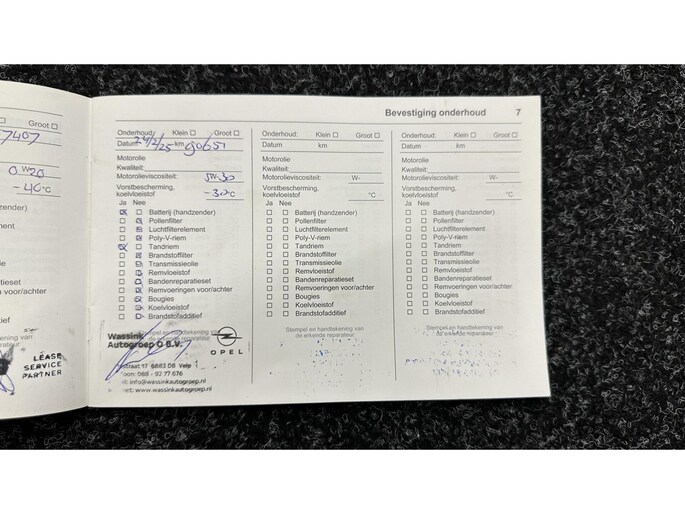 Bevestiging onderhoud 7
7407
Groot
0 W20
-40°C
zender)
ment
reparatieset
en voor/achter
ditief
LEASE
SERVICE
PARTNER
Onderhoud: Klein Groot
Datum 24/2/25 km 90651
Motorolie
Kwaliteit:
Motorolieviscositeit: 5W-30
Vorstbescherming,
koelvloeistof -30°C
Ja Nee
Batterij (handzender)
Pollenfilter
Luchtfilterelement
Poly-V-riem
Tandriem
Brandstoffilter
Transmissieolie
Remvloeistof
Bandenreparatieset
Remvoeringen voor/achter
Bougies
Koelvloeistof
Brandstofadditief
Stempel en handtekening van
de erkende reparateur
Wassink
Autogroep O B.V.
OPEL
straat 17 6883 DB Velp
foon: 088 - 92 77 676
il: info@wassinkautogroep.nl
net: www.wassinkautogroep.nl
Onderhoud: Klein Groot
Datum km
Motorolie
Kwaliteit:
Motorolieviscositeit: W-
Vorstbescherming,
koelvloeistof °C
Ja Nee
Batterij (handzender)
Pollenfilter
Luchtfilterelement
Poly-V-riem
Tandriem
Brandstoffilter
Transmissieolie
Remvloeistof
Bandenreparatieset
Remvoeringen voor/achter
Bougies
Koelvloeistof
Brandstofadditief
Stempel en handtekening van
de erkende reparateur
Onderhoud: Klein Groot
Datum km
Motorolie
Kwaliteit:
Motorolieviscositeit: W-
Vorstbescherming,
koelvloeistof °C
Ja Nee
Batterij (handzender)
Pollenfilter
Luchtfilterelement
Poly-V-riem
Tandriem
Brandstoffilter
Transmissieolie
Remvloeistof
Bandenreparatieset
Remvoeringen voor/achter
Bougies
Koelvloeistof
Brandstofadditief
Stempel en handtekening van
de erkende reparateur